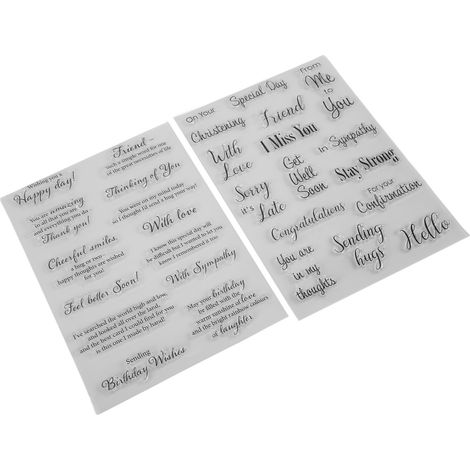 Wishing you a
Happy day!
Friend
such a simple word for one
of the great necessities of life
You are amazing
in all that you say
and everything you do
Thank you!
Thinking of You
You were on my mind today
so I thought I'd send a hug your way!
Cheerful smiles,
a hug or two
happy thoughts are wished
for you!
With love
I know this special day will
be difficult but I wanted to let you
know I remembered too
Feel better Soon!
With Sympathy
I've searched the world high and low,
and looked all over the land,
but the best card I could find for you
is this one I made by hand!
May your birthday
be filled with the
warm sunshine of love
and the bright rainbow colours
of laughter
Sending
Birthday Wishes
On Your
Special Day
From
Me
to
You
Christening
Friend
I Miss You
in Sympathy
With
Love
Get
Well
Soon
Stay Strong
Sorry
it's
Late
For your
Confirmation
Congratulations
You are
in my
thoughts
Sending
hugs
Hello